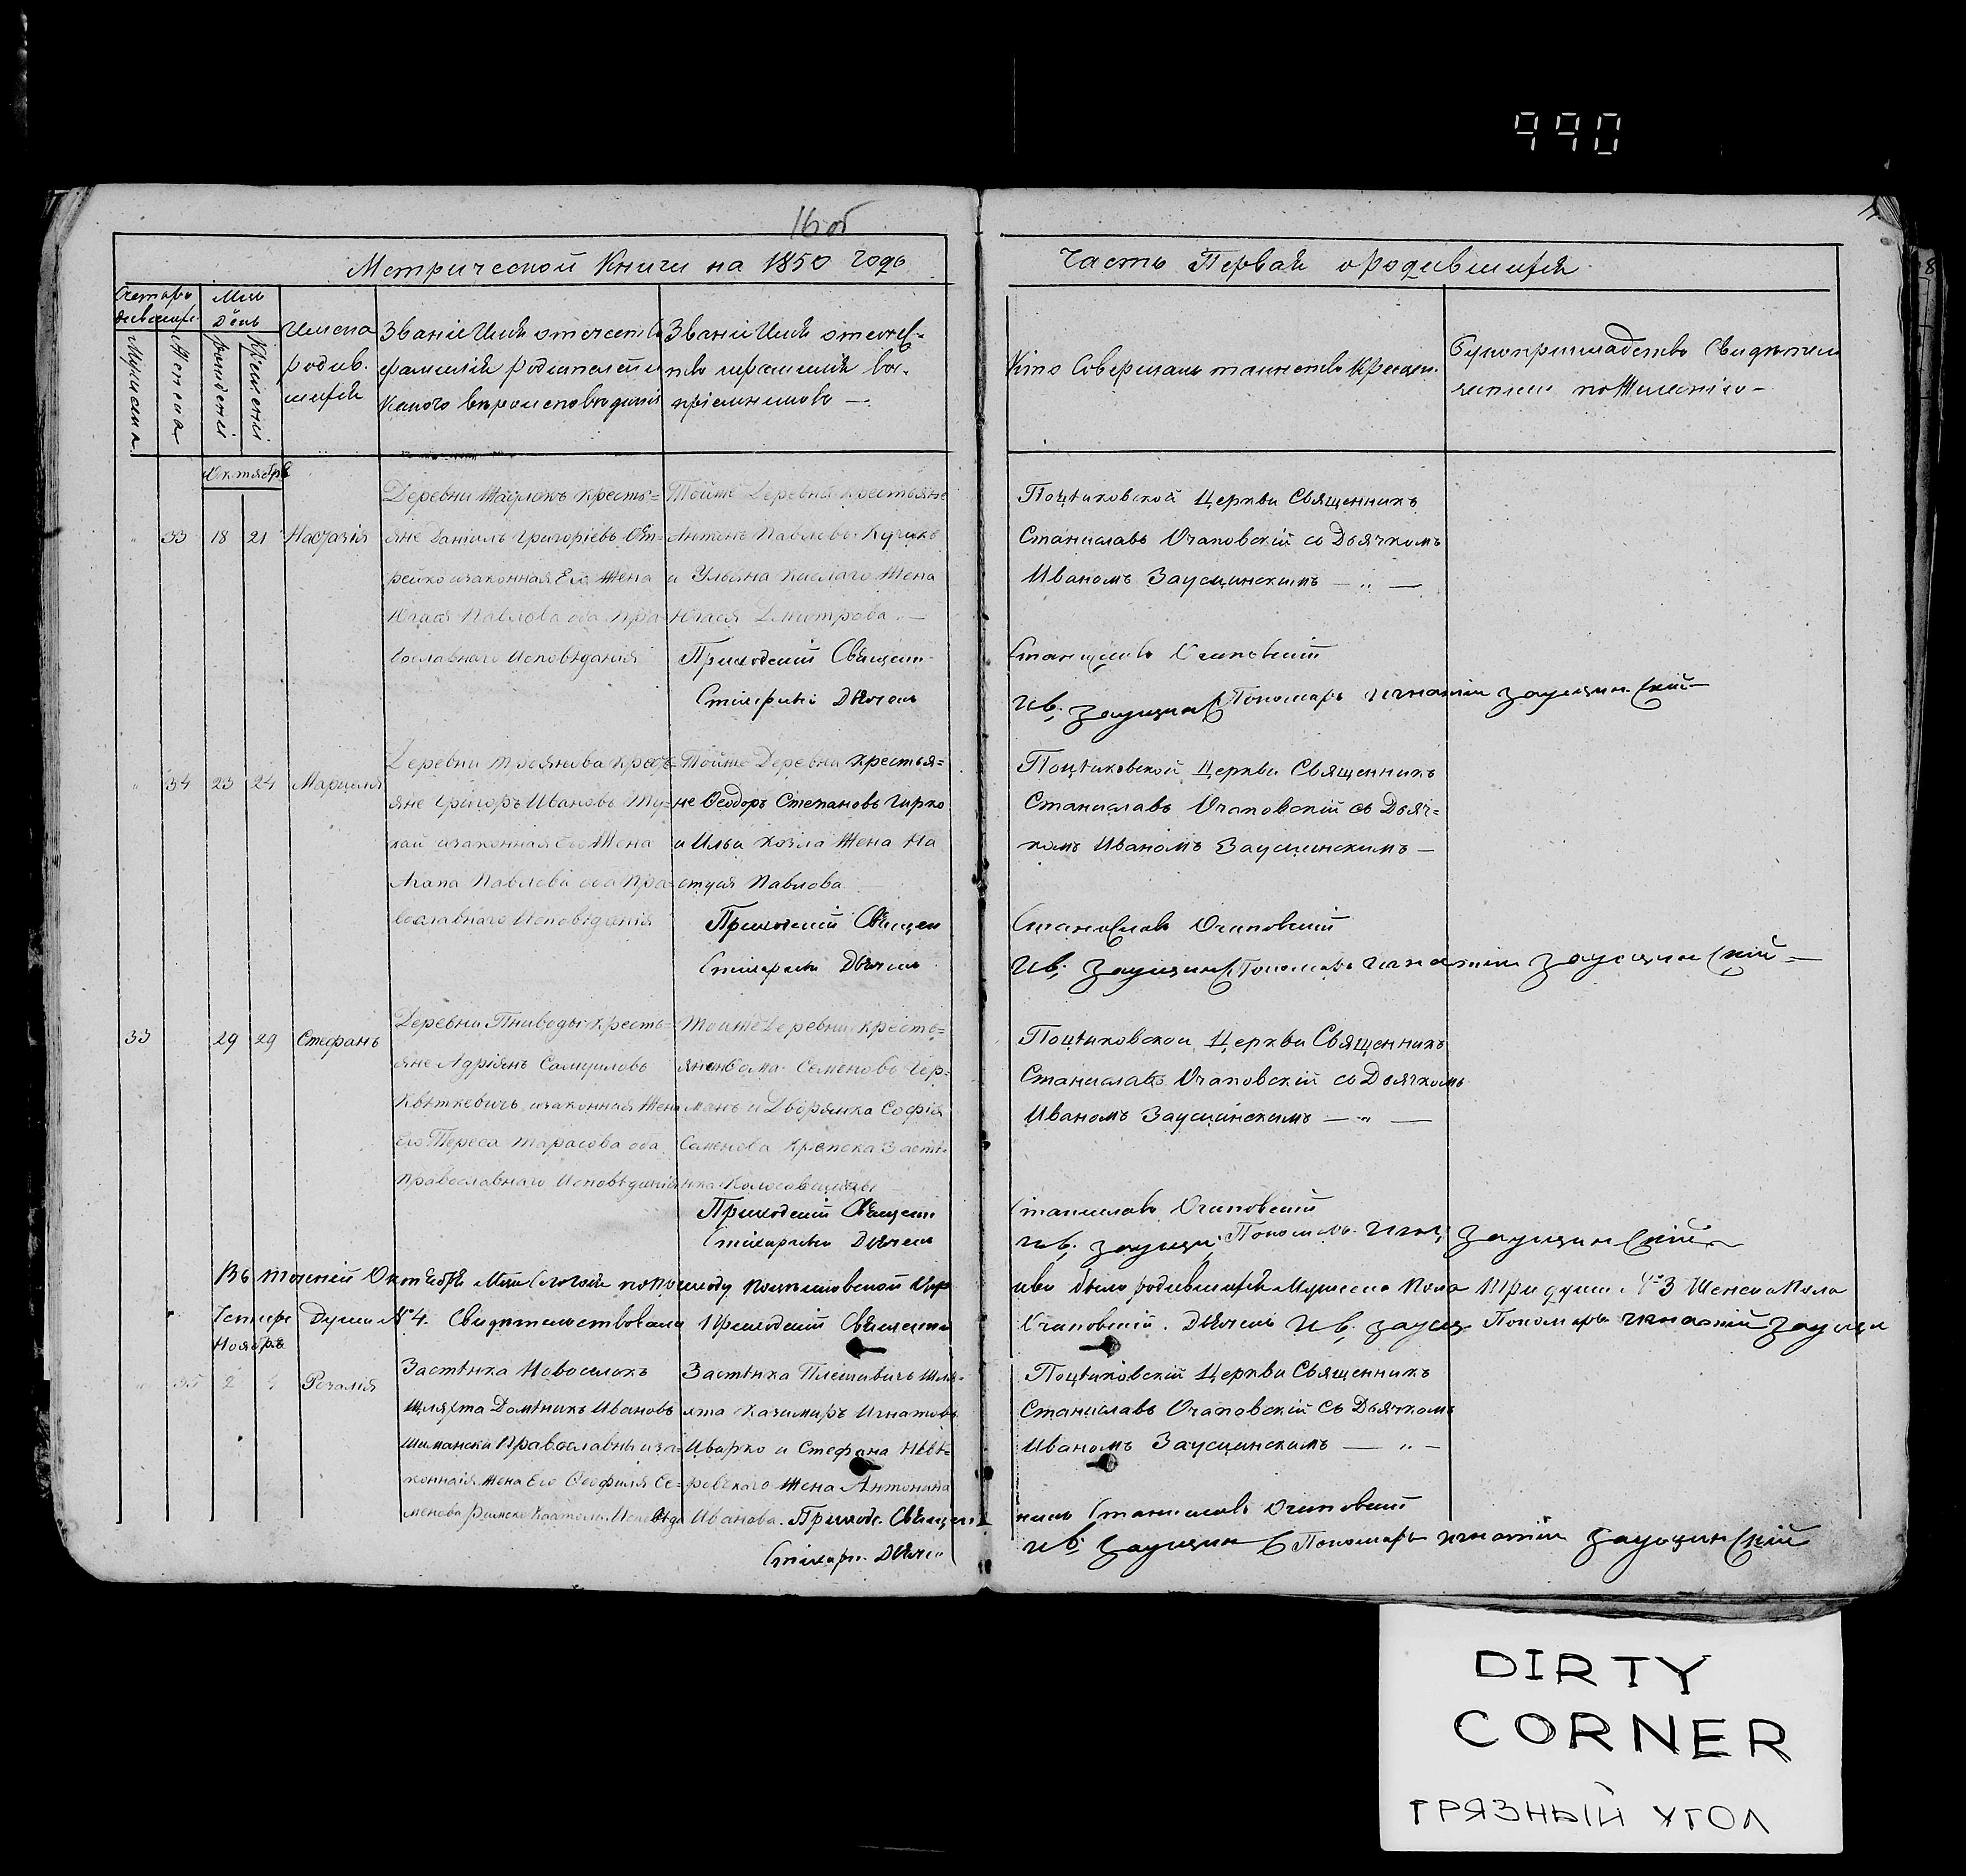 990
16 об
Метрической Книги на 1850 годъ
Часть Первая о родившихся
Счетъ родившихся
Мужеска
Женска
Мць День
рожденія
Крещенія
Имена родившихся
Званіе Имя отчество
фамилія родителей и
какого вѣроисповѣданія
Званіе Имя отчест-
во и фамилія вос-
пріемниковъ —
Кто Совершалъ таинство Крещен.
Рукоприкладство Свидѣтел
записи по Желанію —
Октябрь
33 18 21 Настазія
Деревни крестья=
яне Даніилъ Григорієвъ
рейко и законная Его Жена
Югася Павлова оба Пра-
вославнаго Исповѣданія
Тойже Деревни крестьяне
Антонъ Павловъ Кучукъ
и Ульяна Кислаго Жена
Югася Дмитрова. —
Приходскій Священ-
Дьячекъ
Поцѣиковской Церкви Священникъ
Станиславъ Очаповскій со Дьячкомъ
Иваномъ Заусцинскимъ — „ —
Станиславъ Очаповскій
Ив. Заусцинс Пономарь Игнатій Заусцинскій
34 23 24 Марцеля
Деревни Кресть-
яне Григоръ Ивановъ
кай и законная Его Жена
Агапа Павлова оба Пра-
вославнаго Исповѣданія
Тойже Деревни крестья=
не Ѳеодоръ Степановъ Гирко
и Ильи Козла Жена На
стуся Павлова
Приходскій Священ
Дьячекъ
Поцѣиковской Церкви Священникъ
Станиславъ Очаповскій съ Дьяч=
комъ Иваномъ Заусцинскимъ —
Станиславъ Очаповскій
Ив. Заусцинс Пономарь Игнатій Заусцинскій —
33 29 29 Стефанъ
Деревни Пниводы Кресть-
яне Адріянъ Самуиловъ
Квѣткевичъ и законная Жена
Его Тереса Тарасова оба
Православнаго Исповѣданія
Тойже Деревни Кресть=
янинъ Семеновъ Гер=
манъ и Дворянка Софія
Семенова Крепска Застѣ-
нка
Приходскій Священ
Дьячекъ
Поцѣиковской Церкви Священникъ
Станиславъ Очаповскій со Дьячкомъ
Иваномъ Заусцинскимъ — „ —
Станиславъ Очаповскій
Ив. Заусци. Пономарь Игн. Заусцинскій
Октябрѣ Мцѣ по Цер
кви было родившихся Мужеска Пола Три души № 3 Женска Пола
Четыре Души № 4. Свидѣтельствовали Приходскій Священни
Очаповскій. Дьячекъ Ив. Заусц Пономарь Игнатій Заусци
Ноябрь
35 2 Розалія
Застѣнка Новосилокъ
Шляхта Домѣникъ Ивановъ
Шиманскі Православны и за-
конная Жена Его Ѳеофиля Се-
менова Римско Католи. Исповѣд
Застѣнка Шля-
хта Казимиръ Игнатовъ
Иварко и Стефана
Жена Антонина
Иванова. Приход. Священ
Дьяче
Поцѣиковскій Церкви Священникъ
Станиславъ Очаповскій Съ Дьячкомъ
Иваномъ Заусцинскимъ — „ —
никъ Станиславъ Очаповскій
Ив. Заусцин Пономарь Игнатій Заусцинскій
DIRTY
CORNER
ГРЯЗНЫЙ УГОЛ